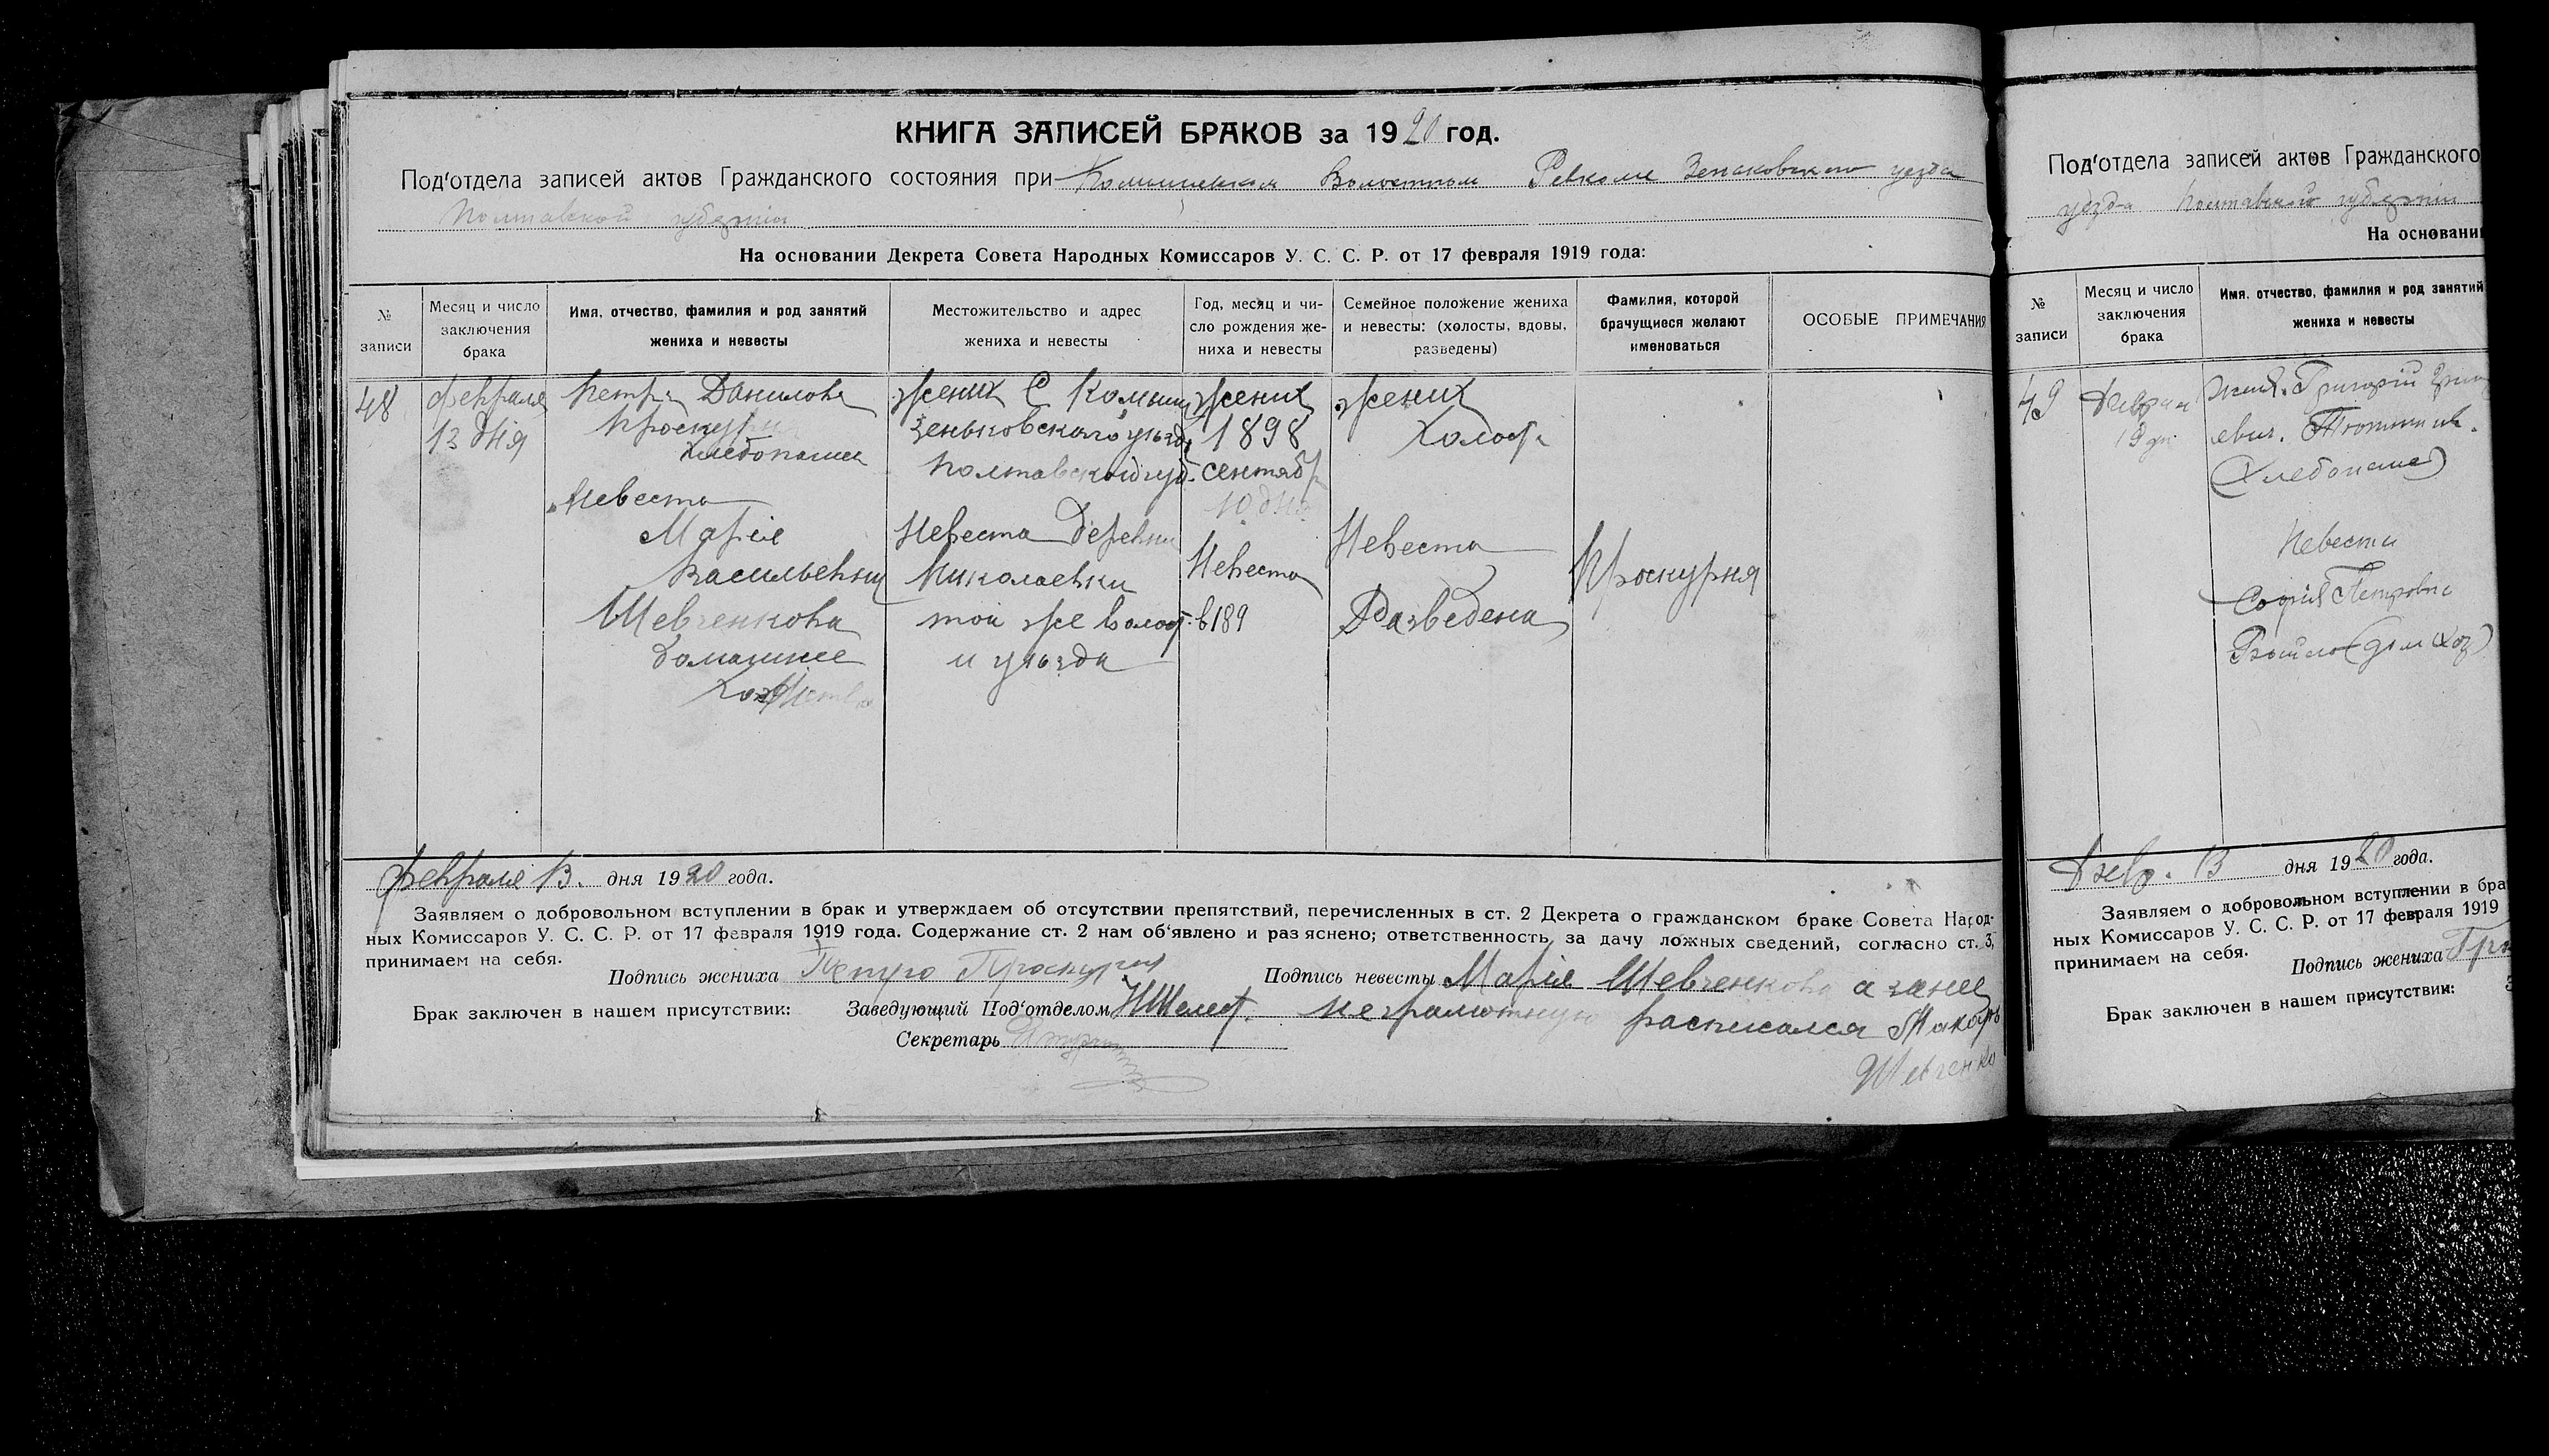 КНИГА ЗАПИСЕЙ БРАКОВ за 1920 год.
Под'отдела записей актов Гражданского состояния при Комышанском Волостном Ревкоме Зеньковского уезда
Полтавской губернии
На основании Декрета Совета Народных Комиссаров У. С. С. Р. от 17 февраля 1919 года:
№ записи
Месяц и число заключения брака
Имя, отчество, фамилия и род занятий жениха и невесты
Местожительство и адрес жениха и невесты
Год, месяц и число рождения жениха и невесты
Семейное положение жениха и невесты: (холосты, вдовы, разведены)
Фамилия, которой брачущиеся желают именоваться
ОСОБЫЕ ПРИМЕЧАНИЯ
48
февраля
13 дня
Петръ Даниловъ
Проскурн
хлебопашец
Невеста
Марiе
Васильевны
Шевченкова
домашнее
жених С Комыш
Зеньковскаго уезд
Полтавской губ
Невеста деревни
Николаевки
той же волост.
и уъзда
жених
1898
сентябр
10 дня
Невеста
в 189
жених
холост
Невеста
Разведена
Проскурня
февраля 13. дня 1920 года.
Заявляем о добровольном вступлении в брак и утверждаем об отсутствии препятствий, перечисленных в ст. 2 Декрета о гражданском браке Совета Народ-
ных Комиссаров У. С. С. Р. от 17 февраля 1919 года. Содержание ст. 2 нам об'явлено и раз яснено; ответственность за дачу ложных сведений, согласно ст. 3,
принимаем на себя.
Подпись жениха Петро Проскурня
Подпись невесты Марiе Шевченкова а занее
неграмотную расписался Макаръ
Шевченко
Брак заключен в нашем присутствии: Заведующий Под'отделом
Секретарь
Под'отдела записей актов Гражданского
уезда Полтавской губернии
На основани
№ записи
Месяц и число заключения брака
Имя, отчество, фамилия и род занятий жениха и невесты
49
Григорiй
евич.
(хлебопаше)
Невести
Софiя Петровн
Февр. 13 дня 1920 года.
Заявляем о добровольном вступлении в бра
ных Комиссаров У. С. С. Р. от 17 февраля 1919
принимаем на себя.
Подпись жениха Гри
Брак заключен в нашем присутствии: